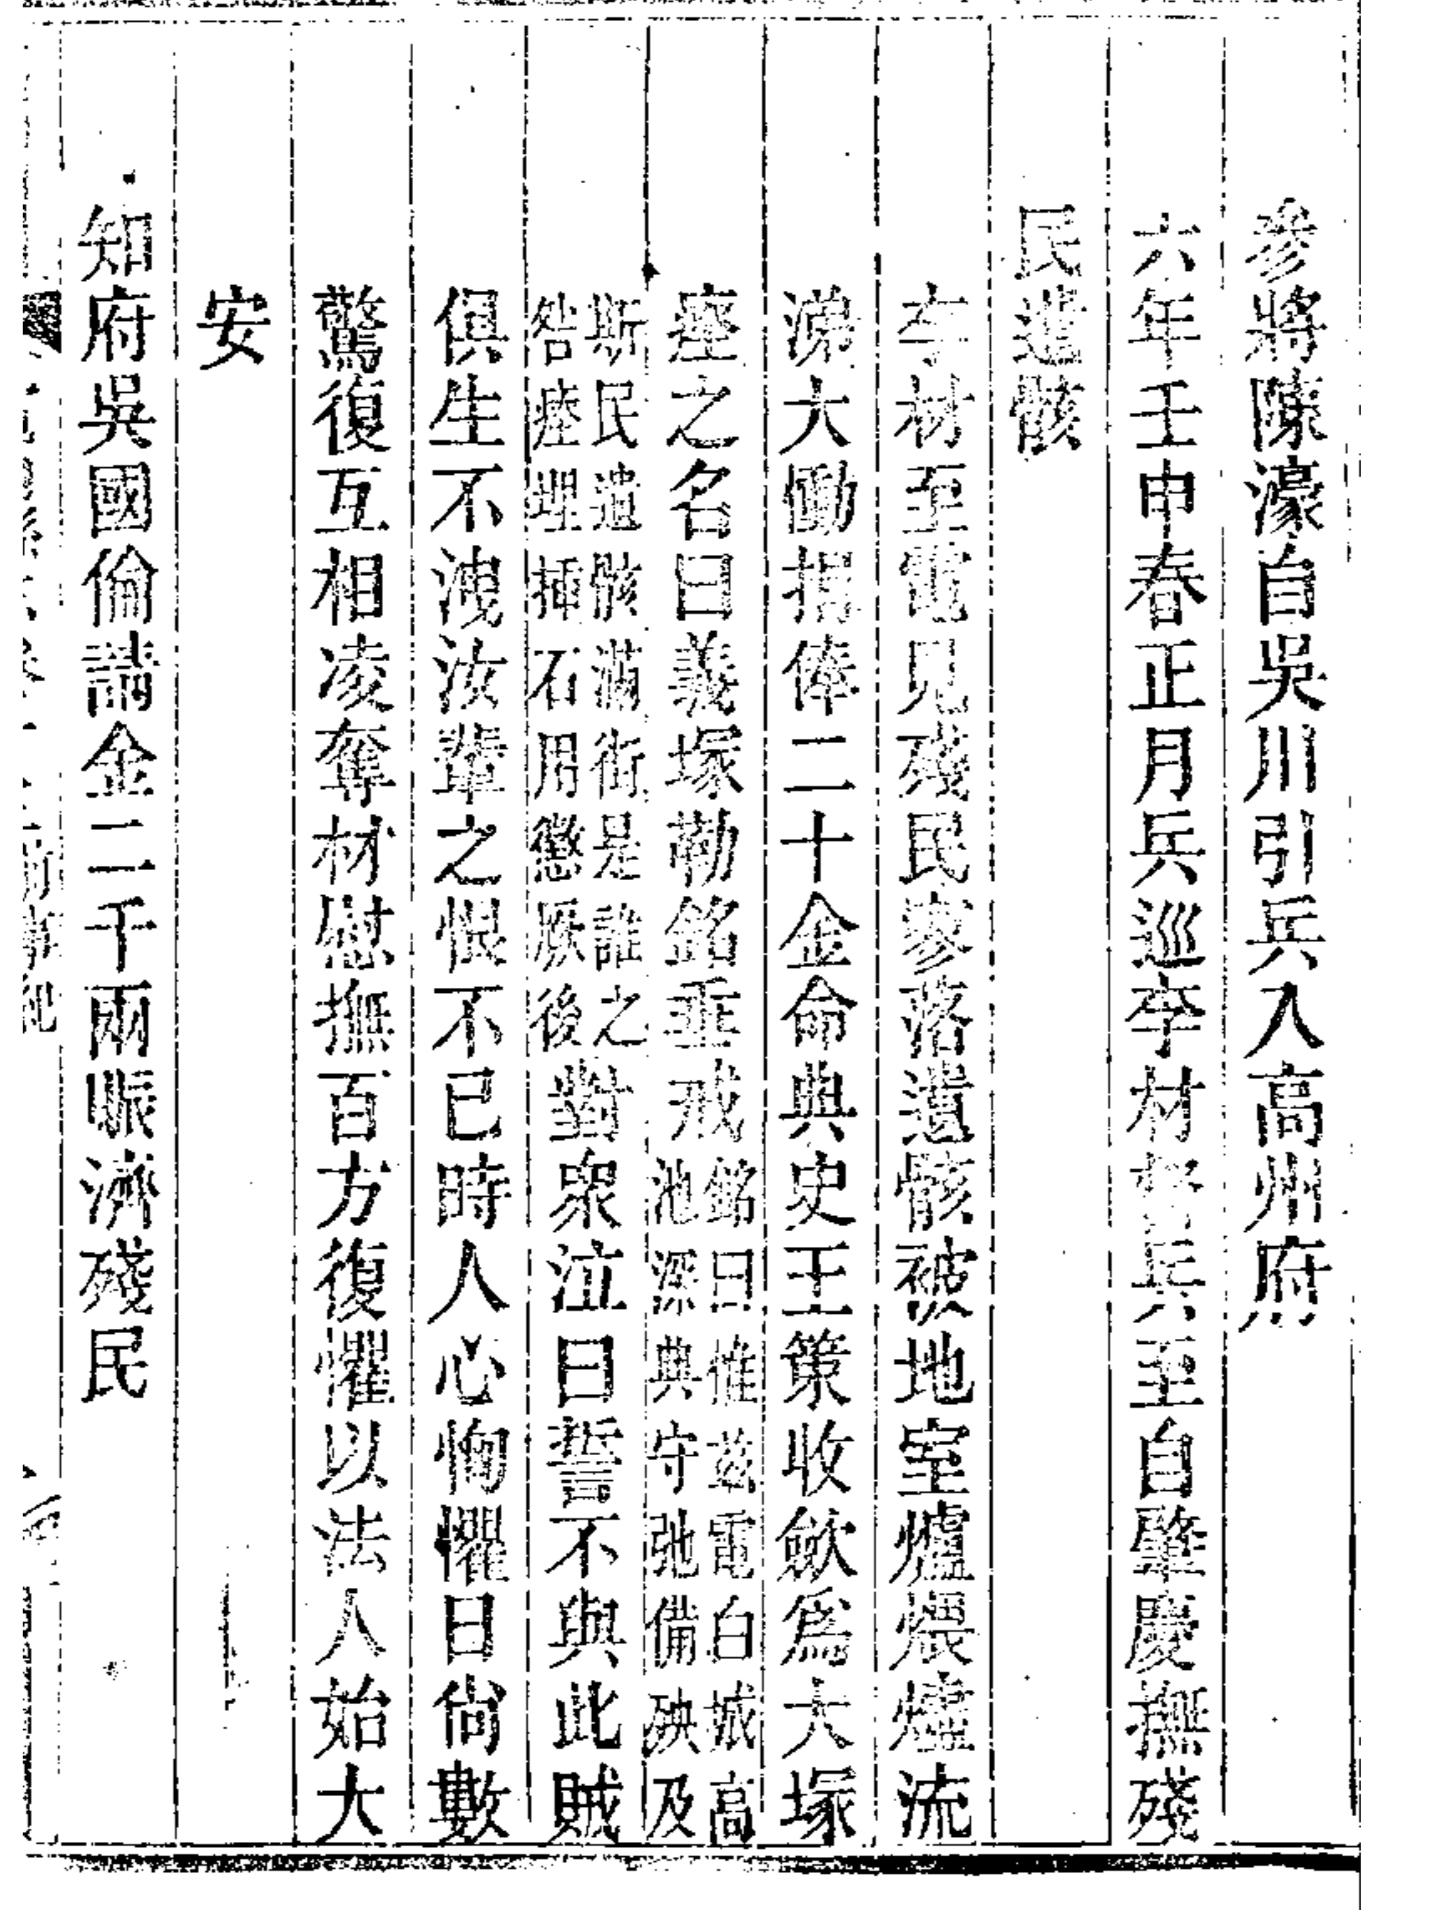 參將陳濠自吳川引兵入高州府
六年壬申春正月兵巡李材督兵至自肇慶撫殘
民遺骸
李材至電見殘民寥落遺骸被地室爐煨燼流
涕大慟捐俸二十金命典史王策收歛爲大塚
瘞之名曰義塚勒銘垂戒銘曰惟茲電白城高
池深典守弛備殃及
斯民遺骸滿街是誰之
咎瘞埋揷石用懲厥後對衆泣曰誓不與此賊
俱生不洩汝輩之恨不已時人心恟懼日尙數
驚復互相凌奪材慰撫百方復懼以法人始大
安
知府吳國倫請金二千兩賑濟殘民